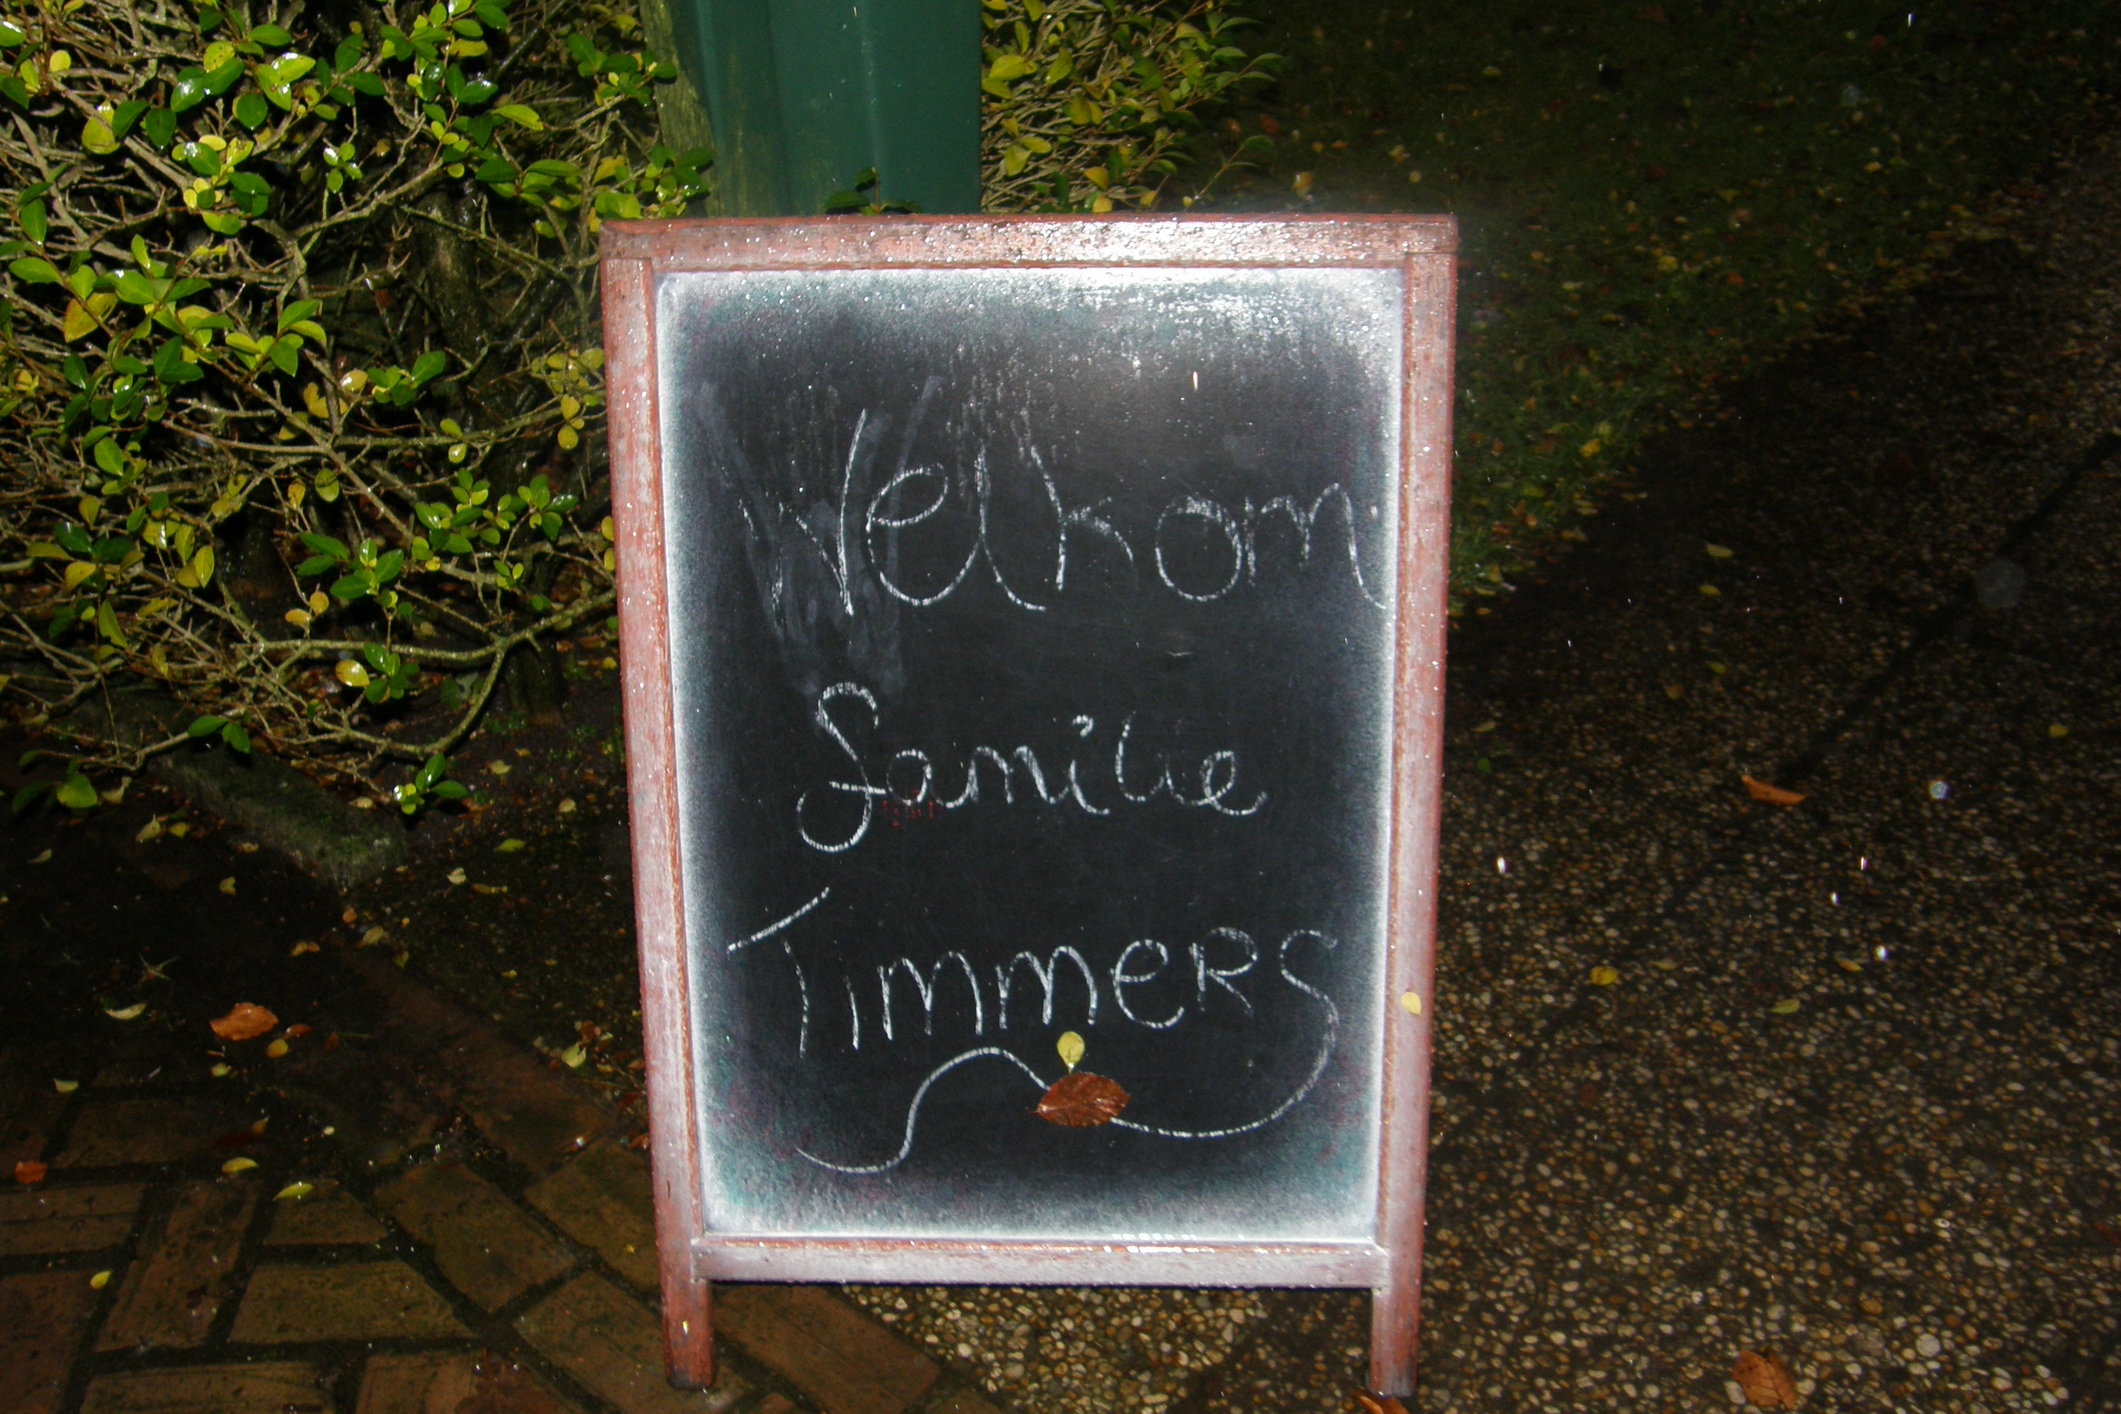 Welkom
familie
Timmers